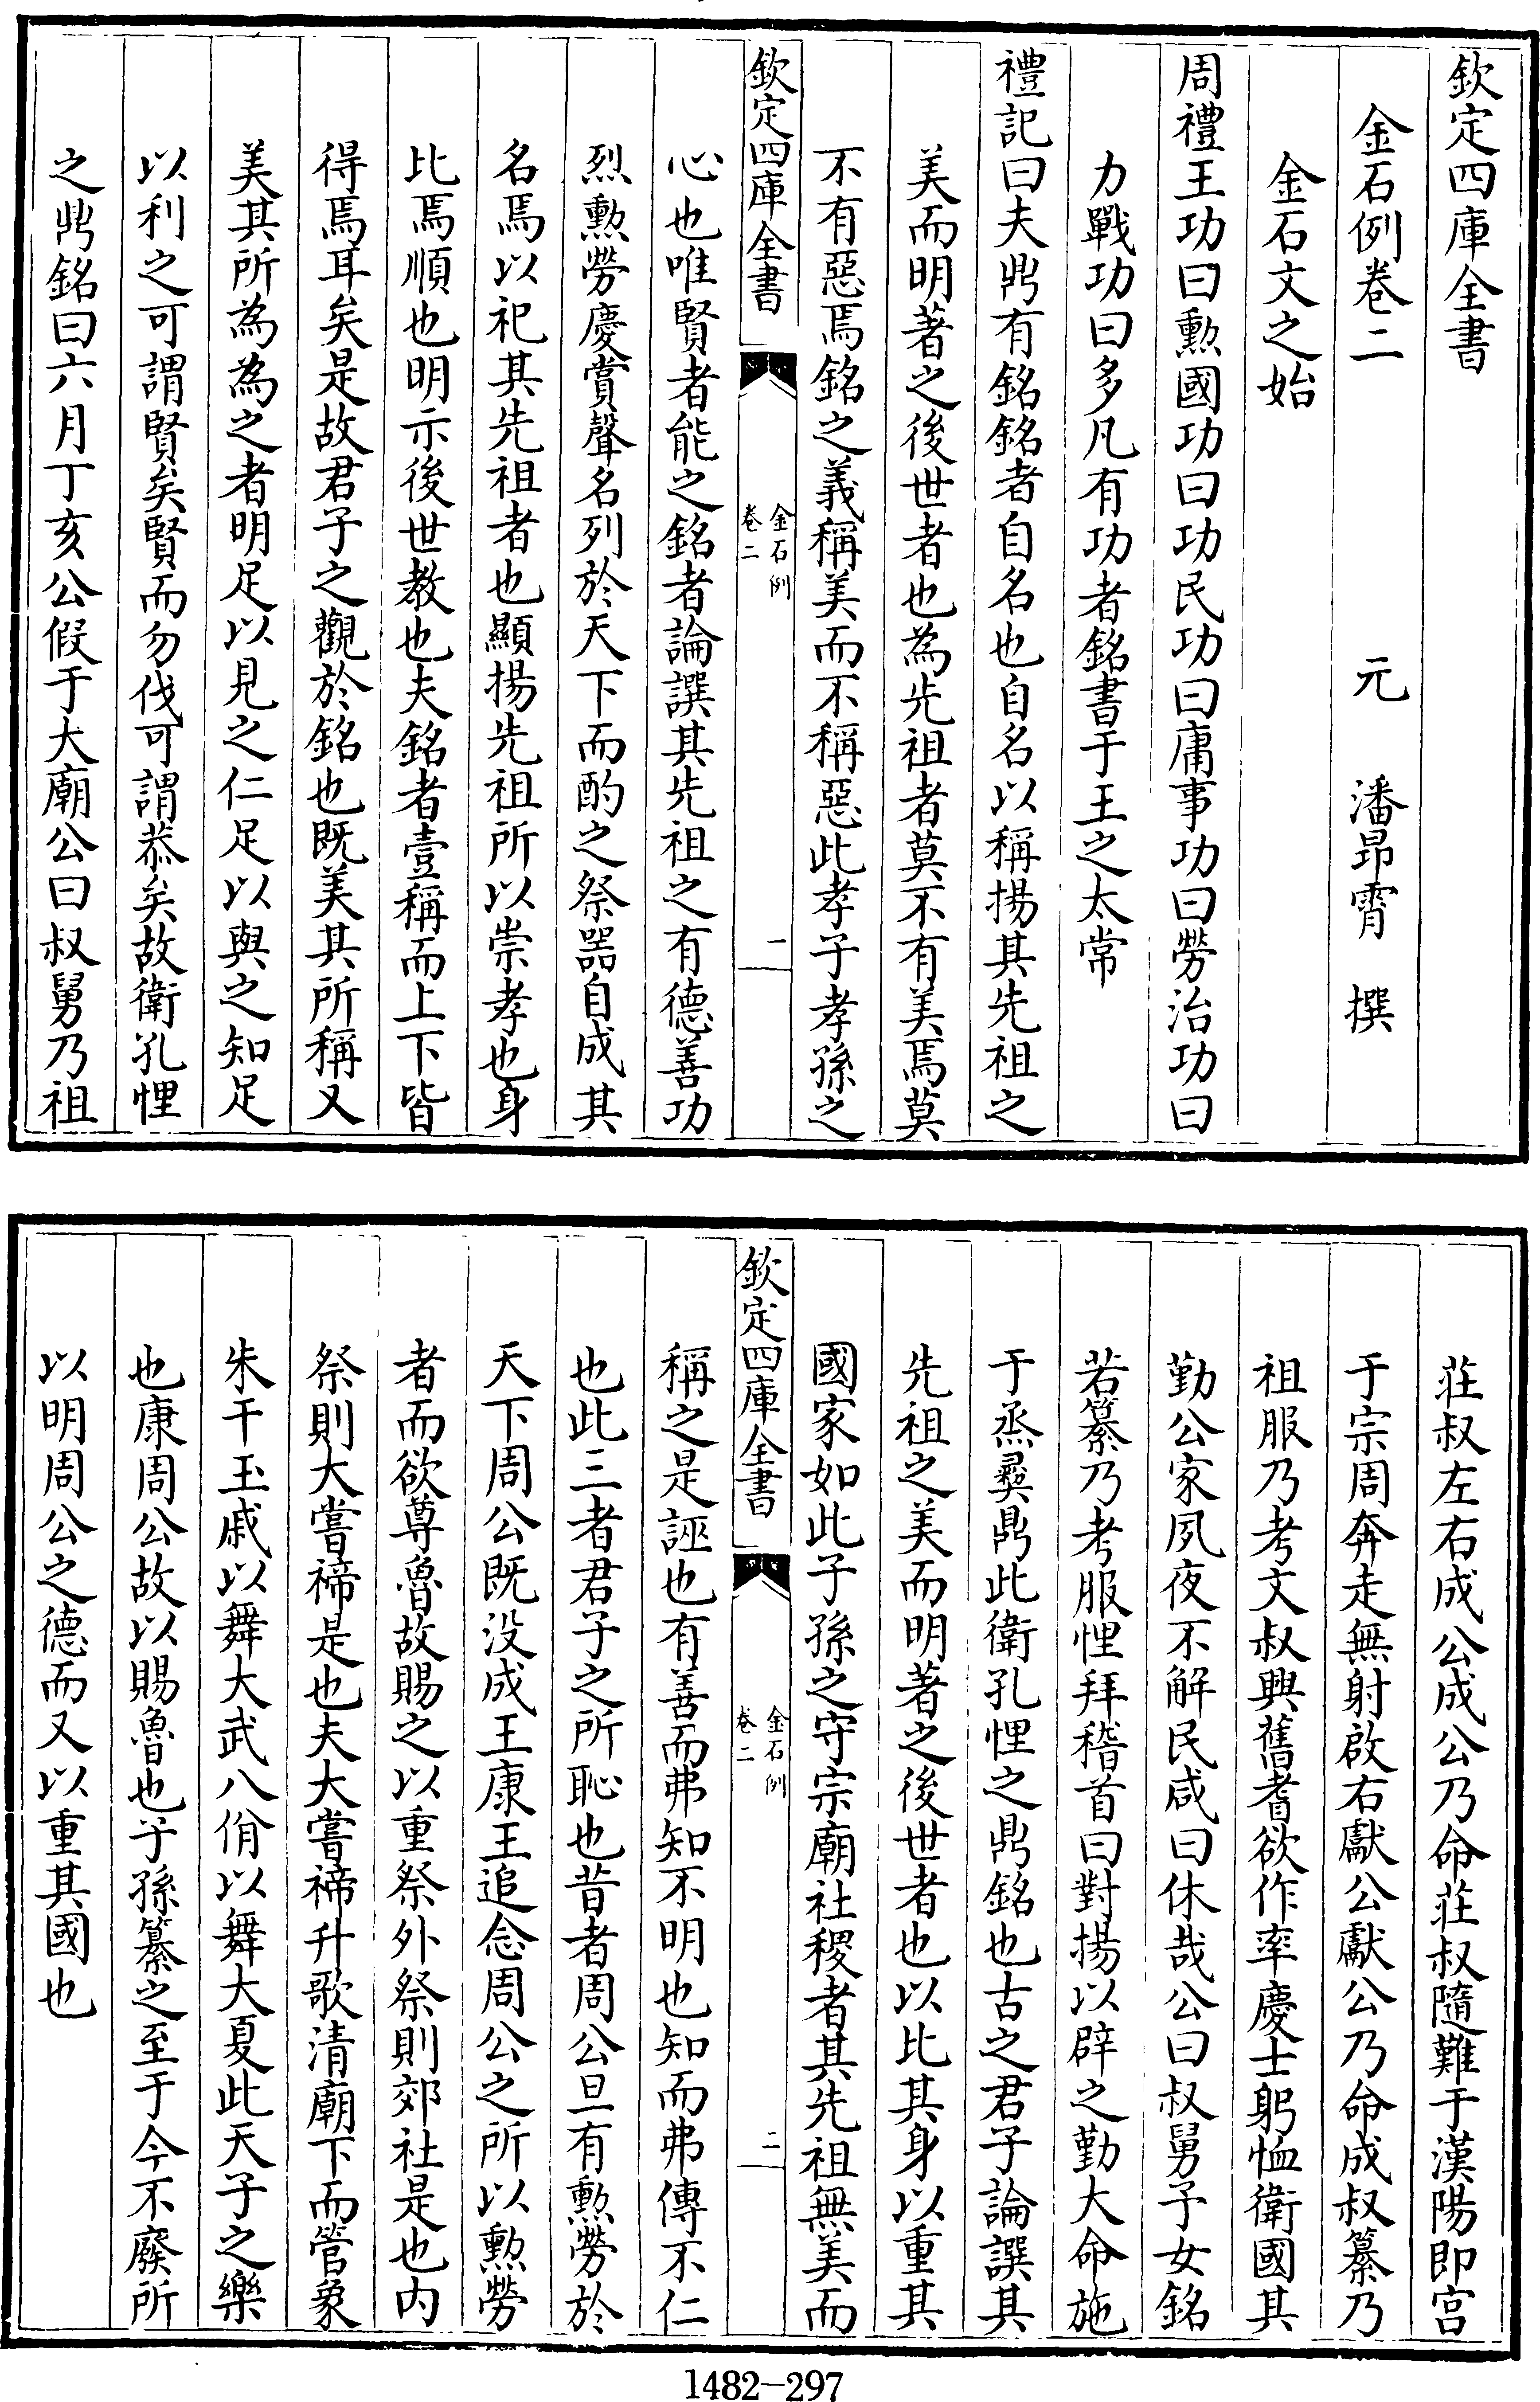 欽定四庫全書
金石例卷二
元　潘昻霄　撰
金石文之始
周禮王功曰勲國功曰功民功曰庸事功曰勞治功曰
力戰功曰多凡有功者銘書于王之太常
禮記曰夫鼎有銘銘者自名也自名以稱揚其先祖之
美而明著之後世者也為先祖者莫不有美焉莫
不有惡焉銘之義稱美而不稱惡此孝子孝孫之
欽定四庫全書
金石例
卷二
一
心也唯賢者能之銘者論譔其先祖之有德善功
烈勲勞慶賞聲名列於天下而酌之祭器自成其
名焉以祀其先祖者也顯揚先祖所以崇孝也身
比焉順也明示後世教也夫銘者壹稱而上下皆
得焉耳矣是故君子之觀於銘也既美其所稱又
美其所為為之者明足以見之仁足以與之知足
以利之可謂賢矣賢而勿伐可謂恭矣故衛孔悝
之鼎銘曰六月丁亥公假于大廟公曰叔舅乃祖
莊叔左右成公成公乃命莊叔隨難于漢陽即宫
于宗周奔走無射啟右獻公獻公乃命成叔纂乃
祖服乃考文叔興舊耆欲作率慶士躬恤衛國其
勤公家夙夜不解民咸曰休哉公曰叔舅予女銘
若纂乃考服悝拜稽首曰對揚以辟之勤大命施
于烝彞鼎此衛孔悝之鼎銘也古之君子論譔其
先祖之美而明著之後世者也以比其身以重其
國家如此子孫之守宗廟社稷者其先祖無美而
欽定四庫全書
金石例
卷二
二
稱之是誣也有善而弗知不明也知而弗傳不仁
也此三者君子之所恥也昔者周公旦有勲勞於
天下周公既没成王康王追念周公之所以勲勞
者而欲尊魯故賜之以重祭外祭則郊社是也内
祭則大嘗禘是也夫大嘗禘升歌清廟下而管象
朱干玉戚以舞大武八佾以舞大夏此天子之樂
也康周公故以賜魯也子孫纂之至于今不廢所
以明周公之德而又以重其國也
1482-297